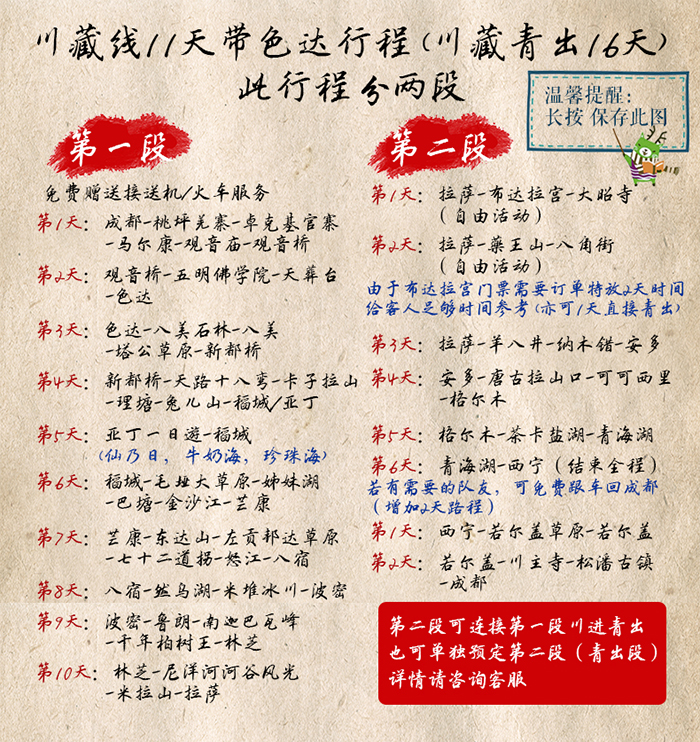 川藏线11天带色达行程(川藏青出16天)
此行程分两段
温馨提醒:
长按 保存此图
第一段
免费赠送接送机/火车服务
第1天: 成都-桃坪羌寨-卓克基官寨
-马尔康-观音庙-观音桥
第2天: 观音桥-五明佛学院-天葬台
-色达
第3天: 色达-八美石林-八美
-塔公草原-新都桥
第4天: 新都桥-天路十八弯-卡子拉山
-理塘-兔儿山-稻城/亚丁
第5天: 亚丁一日遊-稻城
(仙乃日,牛奶海,珍珠海)
第6天: 稻城-毛垭大草原-姊妹湖
-巴塘-金沙江-芒康
第7天: 芒康-东达山-左贡邦达草原
-七十二道拐-怒江-八宿
第8天: 八宿-然乌湖-米堆冰川-波密
第9天: 波密-鲁朗-南迦巴瓦峰
-千年柏树王-林芝
第10天: 林芝-尼洋河河谷风光
-米拉山-拉萨
第二段
第1天: 拉萨-布达拉宫-大昭寺
(自由活动)
第2天: 拉萨-藥王山-八角街
(自由活动)
由于布达拉宫门票需要订单特放2天时间
给客人足够时间参考(亦可1天直接青出)
第3天: 拉萨-羊八井-纳木错-安多
第4天: 安多-唐古拉山口-可可西里
-格尔木
第5天: 格尔木-茶卡盐湖-青海湖
第6天: 青海湖-西宁(结束全程)
若有需要的队友,可免费跟车回成都
(增加2天路程)
第1天: 西宁-若尔盖草原-若尔盖
第2天: 若尔盖-川主寺-松潘古镇
-成都
第二段可连接第一段川进青出
也可单独预定第二段(青出段)
详情请咨询客服